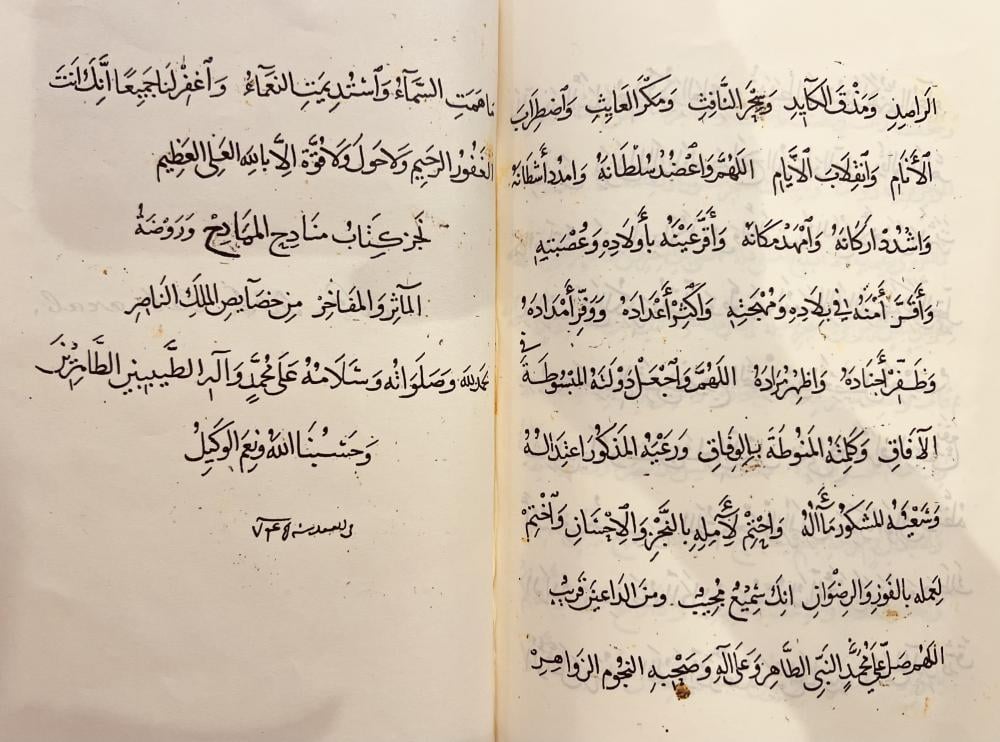 الراصد ومذق الكايد وسحر النافث ومكر العايث واضطراب
الأنام وانقلاب الأيام اللهم واعضد سلطانه وامدد أشطانه
واشدد اركانه وامهد مكانه وأقر عينه بأولاده وعصبته
وأقر أمنه في بلاده ومهجته واكثر أعداده ووفر أمداده
وظفر أجناده واظهر مراده اللهم واجعل دولته المبسوطة في
الآفاق وكلمته المنوطة بالوفاق ورعيه المذكور اعتداله
وسعيه المشكور مآله واختم لأمله بالنجز والإحسان واختم
لعمله بالفوز والرضوان انك سميع مجيب ومن الداعين قريب
اللهم صل على محمد النبي الطاهر وعلى آله وصحبه النجوم الزواهر
ما همت السماء واستديمت النعماء واغفر لنا جميعا انك انت
الغفور الرحيم ولا حول ولا قوة الا بالله العلى العظيم
نجز كتاب منادح الممادح وروضة
المآثر والمفاخر من خصايص الملك الناصر
بحمد لله وصلواته وسلامه على محمد وآله الطيبين الطاهرين
وحسبنا الله ونعم الوكيل